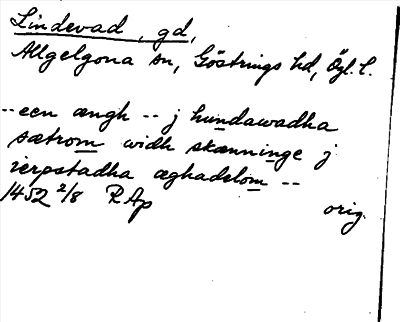 Lindevad, gd,
Allgelgona sn, Göstrings hd, Ögl. l.
-- een ængh -- j hundawadha
sætrom widh skænninge j
ierpstadha æghadelom --
1452 2/8 RAp orig.